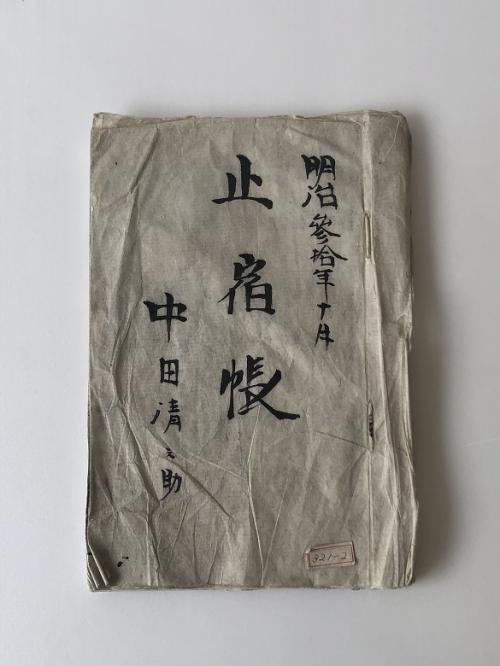 明治参拾年十月
止宿帳
中田清之助
321-2